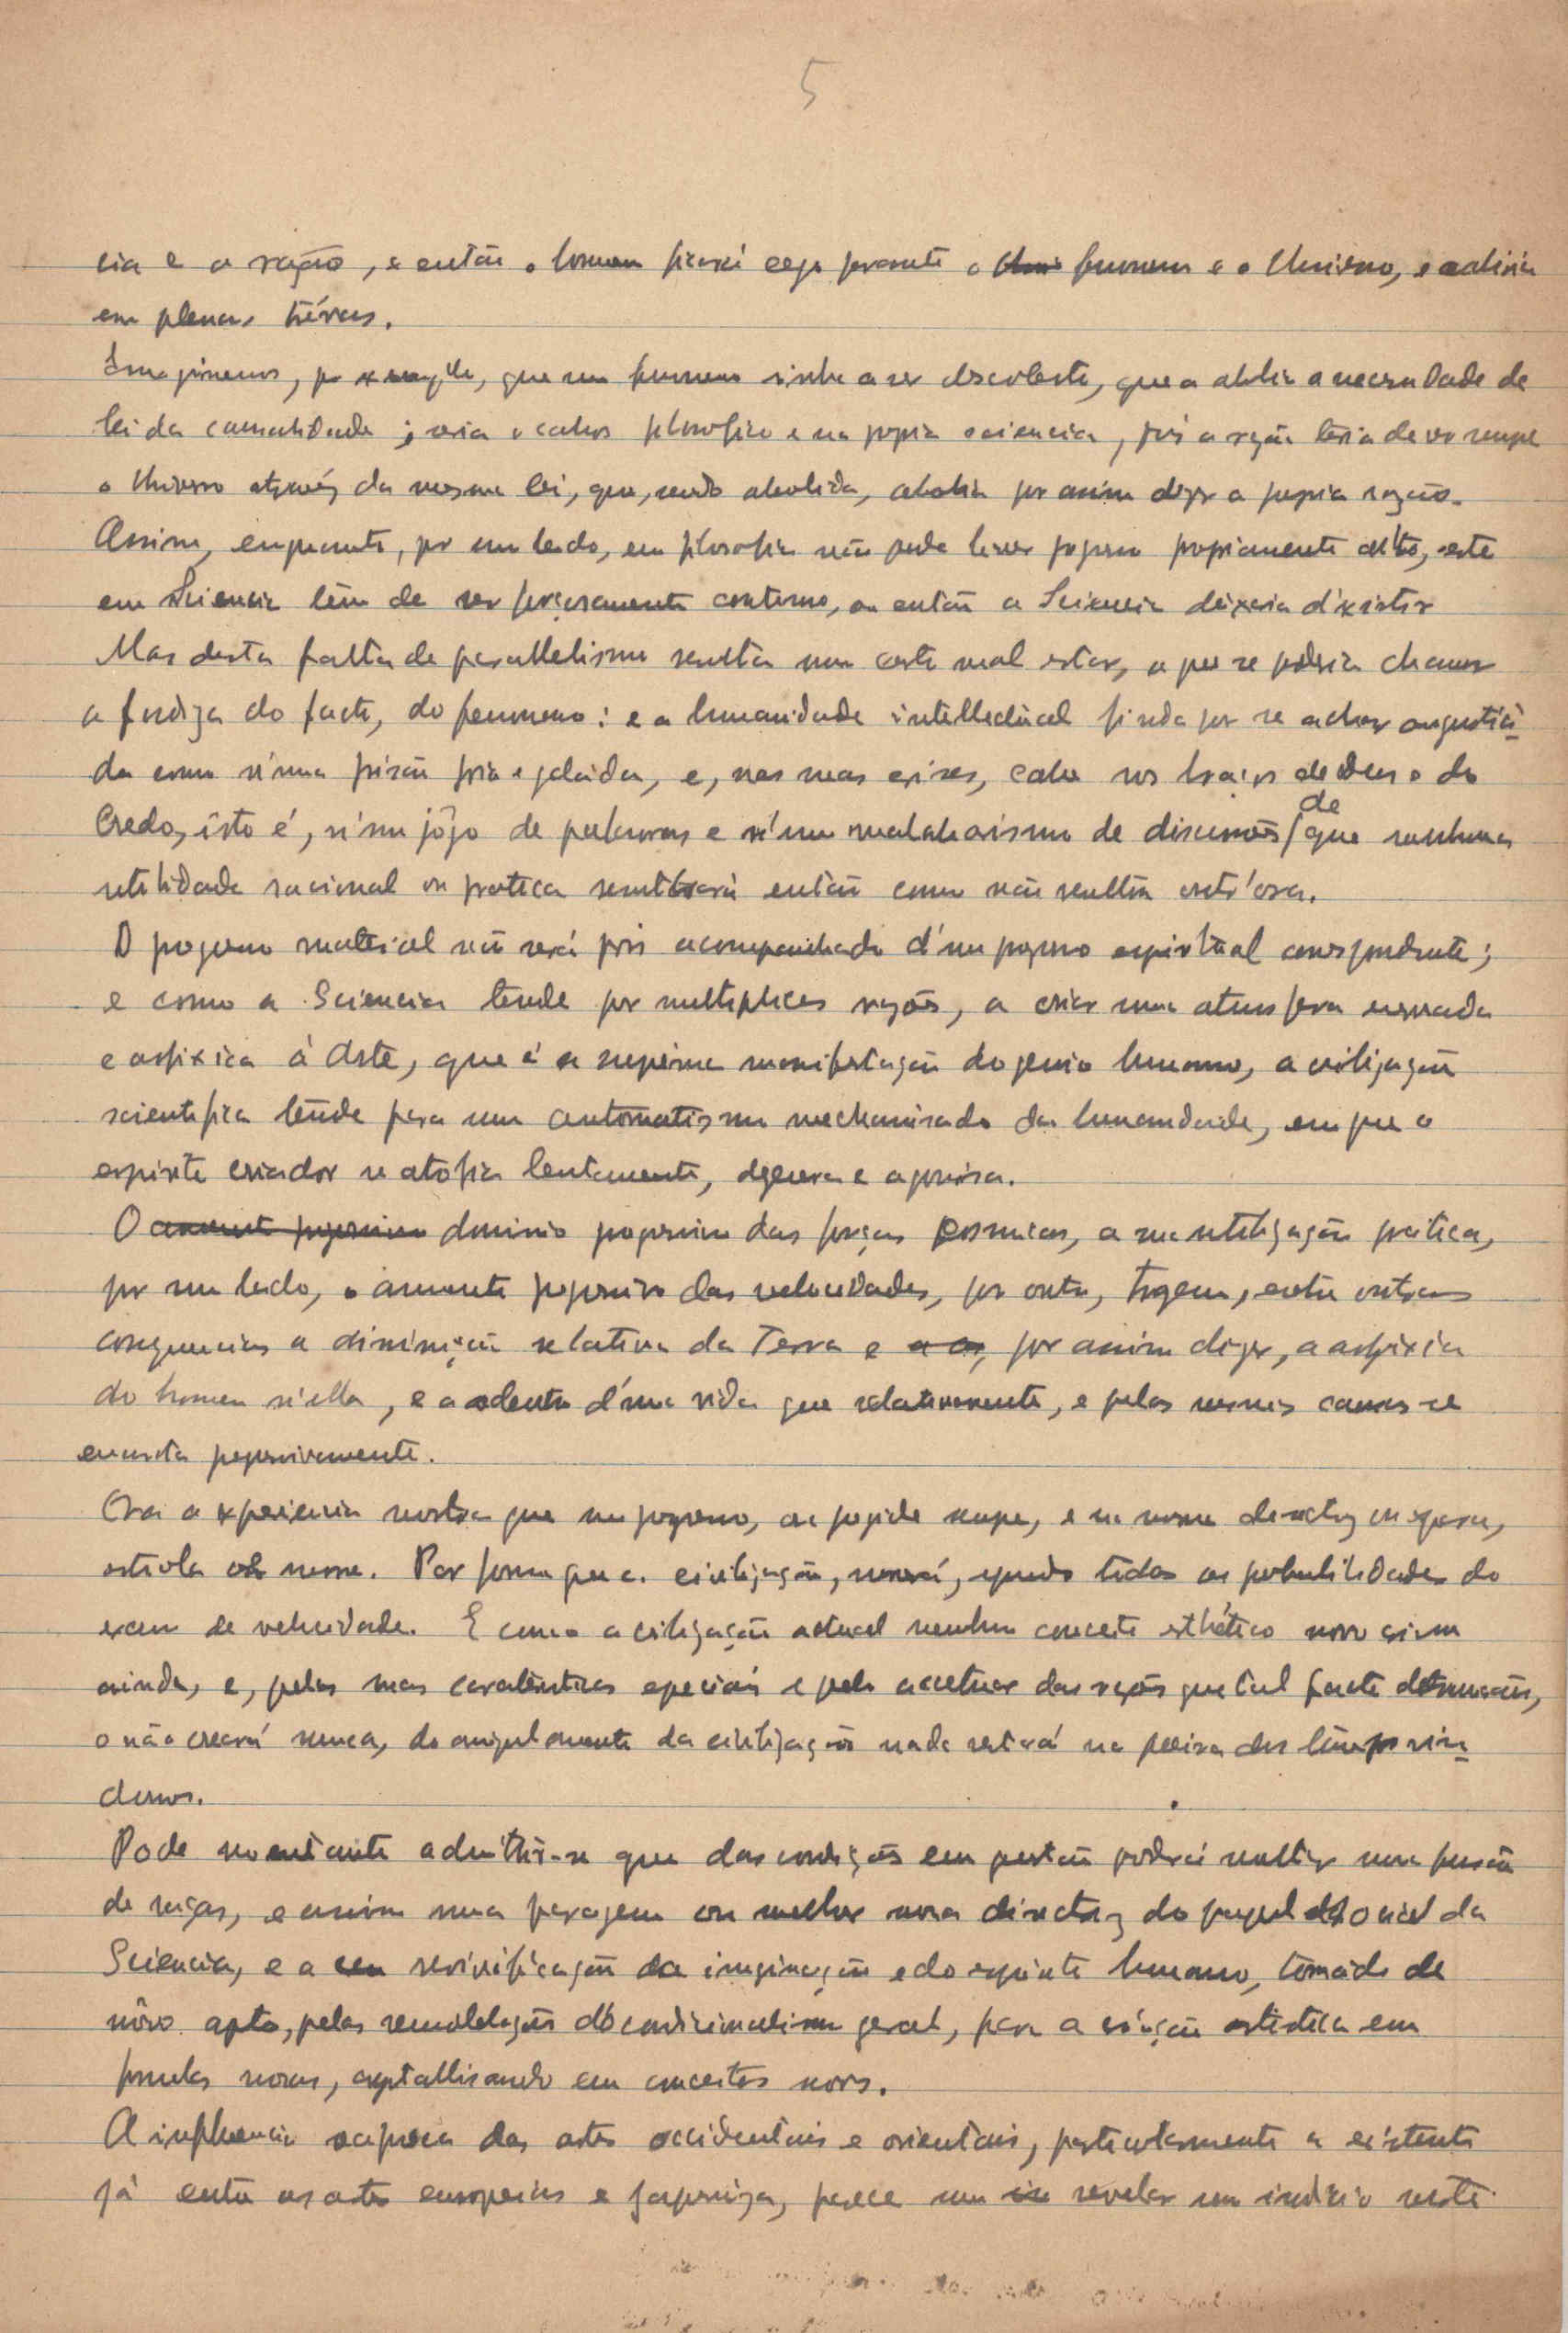 5
cia e a razão, e então o homem ficará cego perante o fenomeno e o Universo, e cahiria
em plenas trévas.
Imaginemos, por exemplo, que um fenomeno vinha a ser descoberto, que abolia a necessidade de
lei da causalidade; seria o cahos filosofico e na propria sciencia, pois a razão teria de ver sempre
o Universo através da mesma lei, que, sendo abolida, abolia por assim dizer a propria razão.
Assim, emquanto, por um lado, em filosofia não pode haver progresso propriamente dito, este
em Sciencia têm de ser forçosamente continuo, ou então a Sciencia deixaria d'existir
Mas desta falta de parallelismo resulta um certo mal estar, a que se poderia chamar
a do facto, do fenomeno: e a humanidade intellectual finda por se achar angustia-
da como n'uma prisão fria e gelada, e, nas suas crises, cahe nos braços de deus e do
Credo, isto é, n'um jôgo de palavras e n'um malabarismo de discussões de que nenhuma
utilidade racional ou pratica resultará então como não resultou outr'ora.
O progresso material não será pois acompanhado d'um progresso espiritual correspondente;
e como a Sciencia tende por multiplices razões, a criar uma atmosfera
e asfixica á Arte, que é a suprema manifestação do genio humano, a civilização
scientifica tende para um automatismo mechanisado da humanidade, em que o
espirito criador se atrofia lentamente, degenera e agonisa.
O dominio progressivo das forças cosmicas, a sua utilização pratica,
por um lado, o aumento progressivo das velocidades, por outro, trazem, entre outras
consequencias a diminuição relativa da Terra e por assim dizer, a asfixia
do homem n'ella, e a dentro d'uma vida que relativamente, e pelas mesmas causas se
encurta progressivamente.
Ora a experiencia mostra que um progresso, ou progride sempre, e na mesma directriz ou
ou morre. Por forma que a civilização, morrerá, segundo todas as probabilidades do
excesso de velocidade. E como a civilização actual nenhum conceito esthético novo criou
ainda, e, pelas suas caracteristicas especiais e pelo accentuar das razões que tal facto determinam,
o não creará nunca, da civilização nada restará na poeira dos tempos vin-
douros.
Pode no entanto admittir-se que das condições em questão poderá resultar uma fusão
de raças, e assim uma paragem ou melhor nova directriz do papel social da
Sciencia, e a revivificação da imaginação e do espirito humano, tornado de
nôvo apto, pelas remodelações do condicionalismo geral, para a criação artistica em
formulas novas, crystallisando em conceitos novos.
A influencia reciproca das artes occidentais e orientais, particularmente a existente
já entre as artes europeias e japoneza, parece revelar um indicio neste